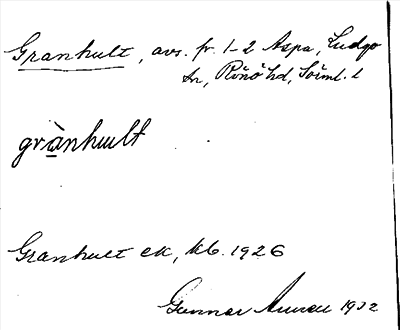 Granhult, avs. fr. 1-2 Aspa, Ludgo
sn, Rönö hd, Söml. l
grànhult
Granhult ek, kb. 1926
Gunnar 1932